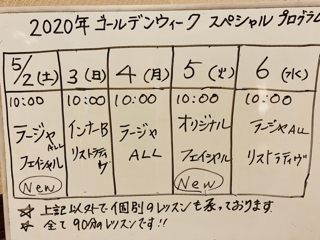 2020年 ゴールデンウィーク スペシャル プログラム
5/2(土) 3(日) 4(月) 5(火) 6(水)
10:00 10:00 10:00 10:00 10:00
ラージャALL インナーB ラージャ オリジナル ラージャALL
フェイシャル リストラティヴ ALL フェイシャル リストラティヴ
New New
☆ 上記以外で個別のレッスンも承っております
☆ 全て90分のレッスンです!!